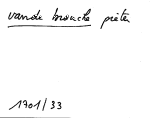 vande brouche pieter
1701/33